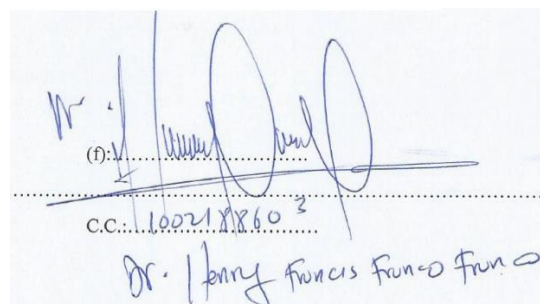 (f):..............................
C.C.: 1002188603
Dr. Henry Francis Franco Franco